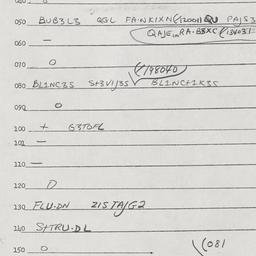 050 BUB3L3 QGL PA·NKIXN (12001) QU PAJS3
QAJE in RA·B3XC (134031=
060 —
070 O
(198040)
080 BL1NC3S S+3V1/3S BL1NC+1K3S
090 O
100 + G3TOFL
101 —
110 —
120 D
130 FLU·DN 21STA/G2
140 S+TRU·DL
(081
150 O